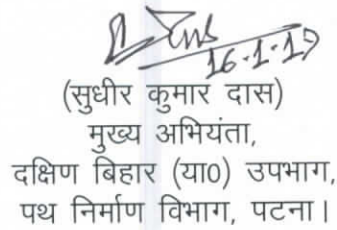 16-1-19
(सुधीर कुमार दास)
मुख्य अभियंता,
दक्षिण बिहार (या0) उपभाग,
पथ निर्माण विभाग, पटना।